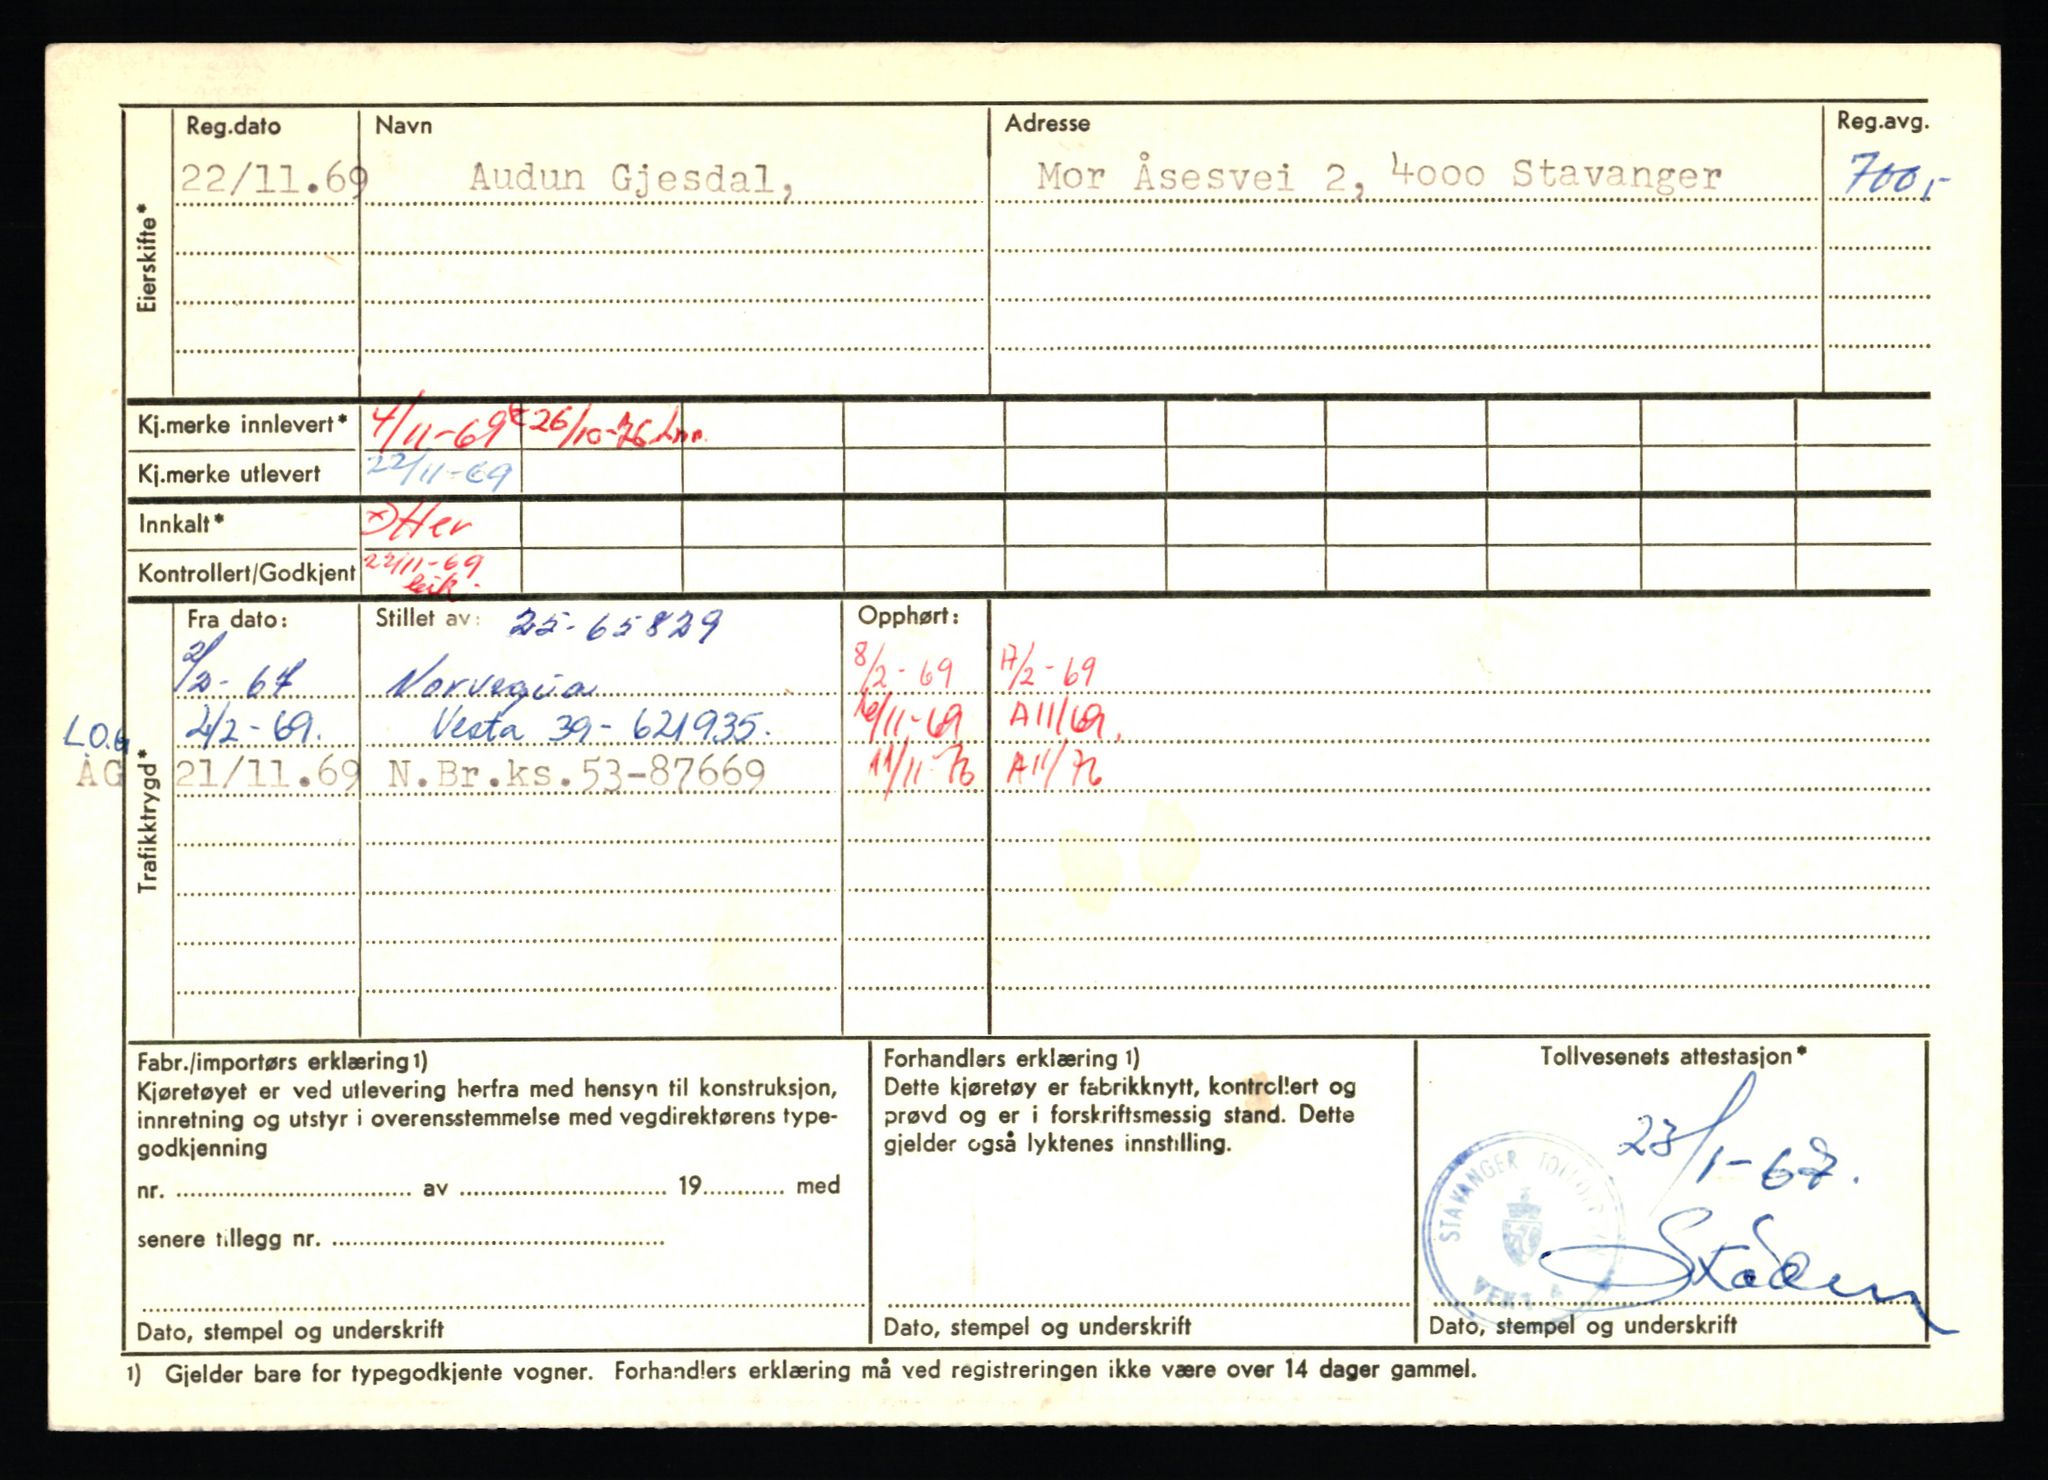 Reg.dato Navn Adresse Reg.avg.
Eierskifte*
22/11.69 Audun Gjesdal, Mor Åsesvei 2, 4000 Stavanger 700,-
Kj.merke innlevert* 4/11-69 26/10-76
Kj.merke utlevert 22/11-69
Innkalt*
Kontrollert/Godkjent 22/11-69
Trafikktrygd*
Fra dato: Stillet av: 25-65829 Opphørt:
2/2-67 Norvegia 8/2-69 17/2-69
L.O.G 4/2-69. Vesta 39-621935. 10/11-69 A11/69.
ÅG 21/11.69 N.Br.ks.53-87669 11/11-76 A11/76
Fabr./importørs erklæring 1)
Kjøretøyet er ved utlevering herfra med hensyn til konstruksjon,
innretning og utstyr i overensstemmelse med vegdirektørens type-
godkjenning
nr. av 19 med
senere tillegg nr.
Dato, stempel og underskrift
Forhandlers erklæring 1)
Dette kjøretøy er fabrikknytt, kontrollert og
prøvd og er i forskriftsmessig stand. Dette
gjelder også lyktenes innstilling.
Dato, stempel og underskrift
Tollvesenets attestasjon*
23/1-67.
STAVANGER
Dato, stempel og underskrift
1) Gjelder bare for typegodkjente vogner. Forhandlers erklæring må ved registreringen ikke være over 14 dager gammel.